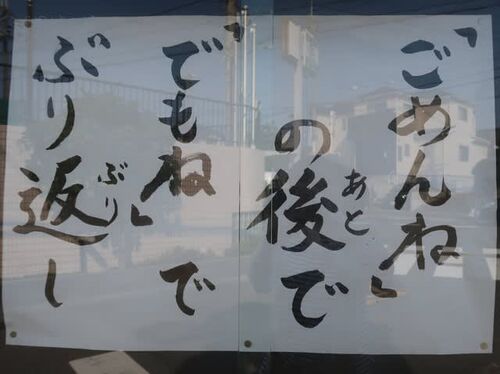 「ごめんね」
の後で
あと
「でもね」で
ぶり返し
ぶり